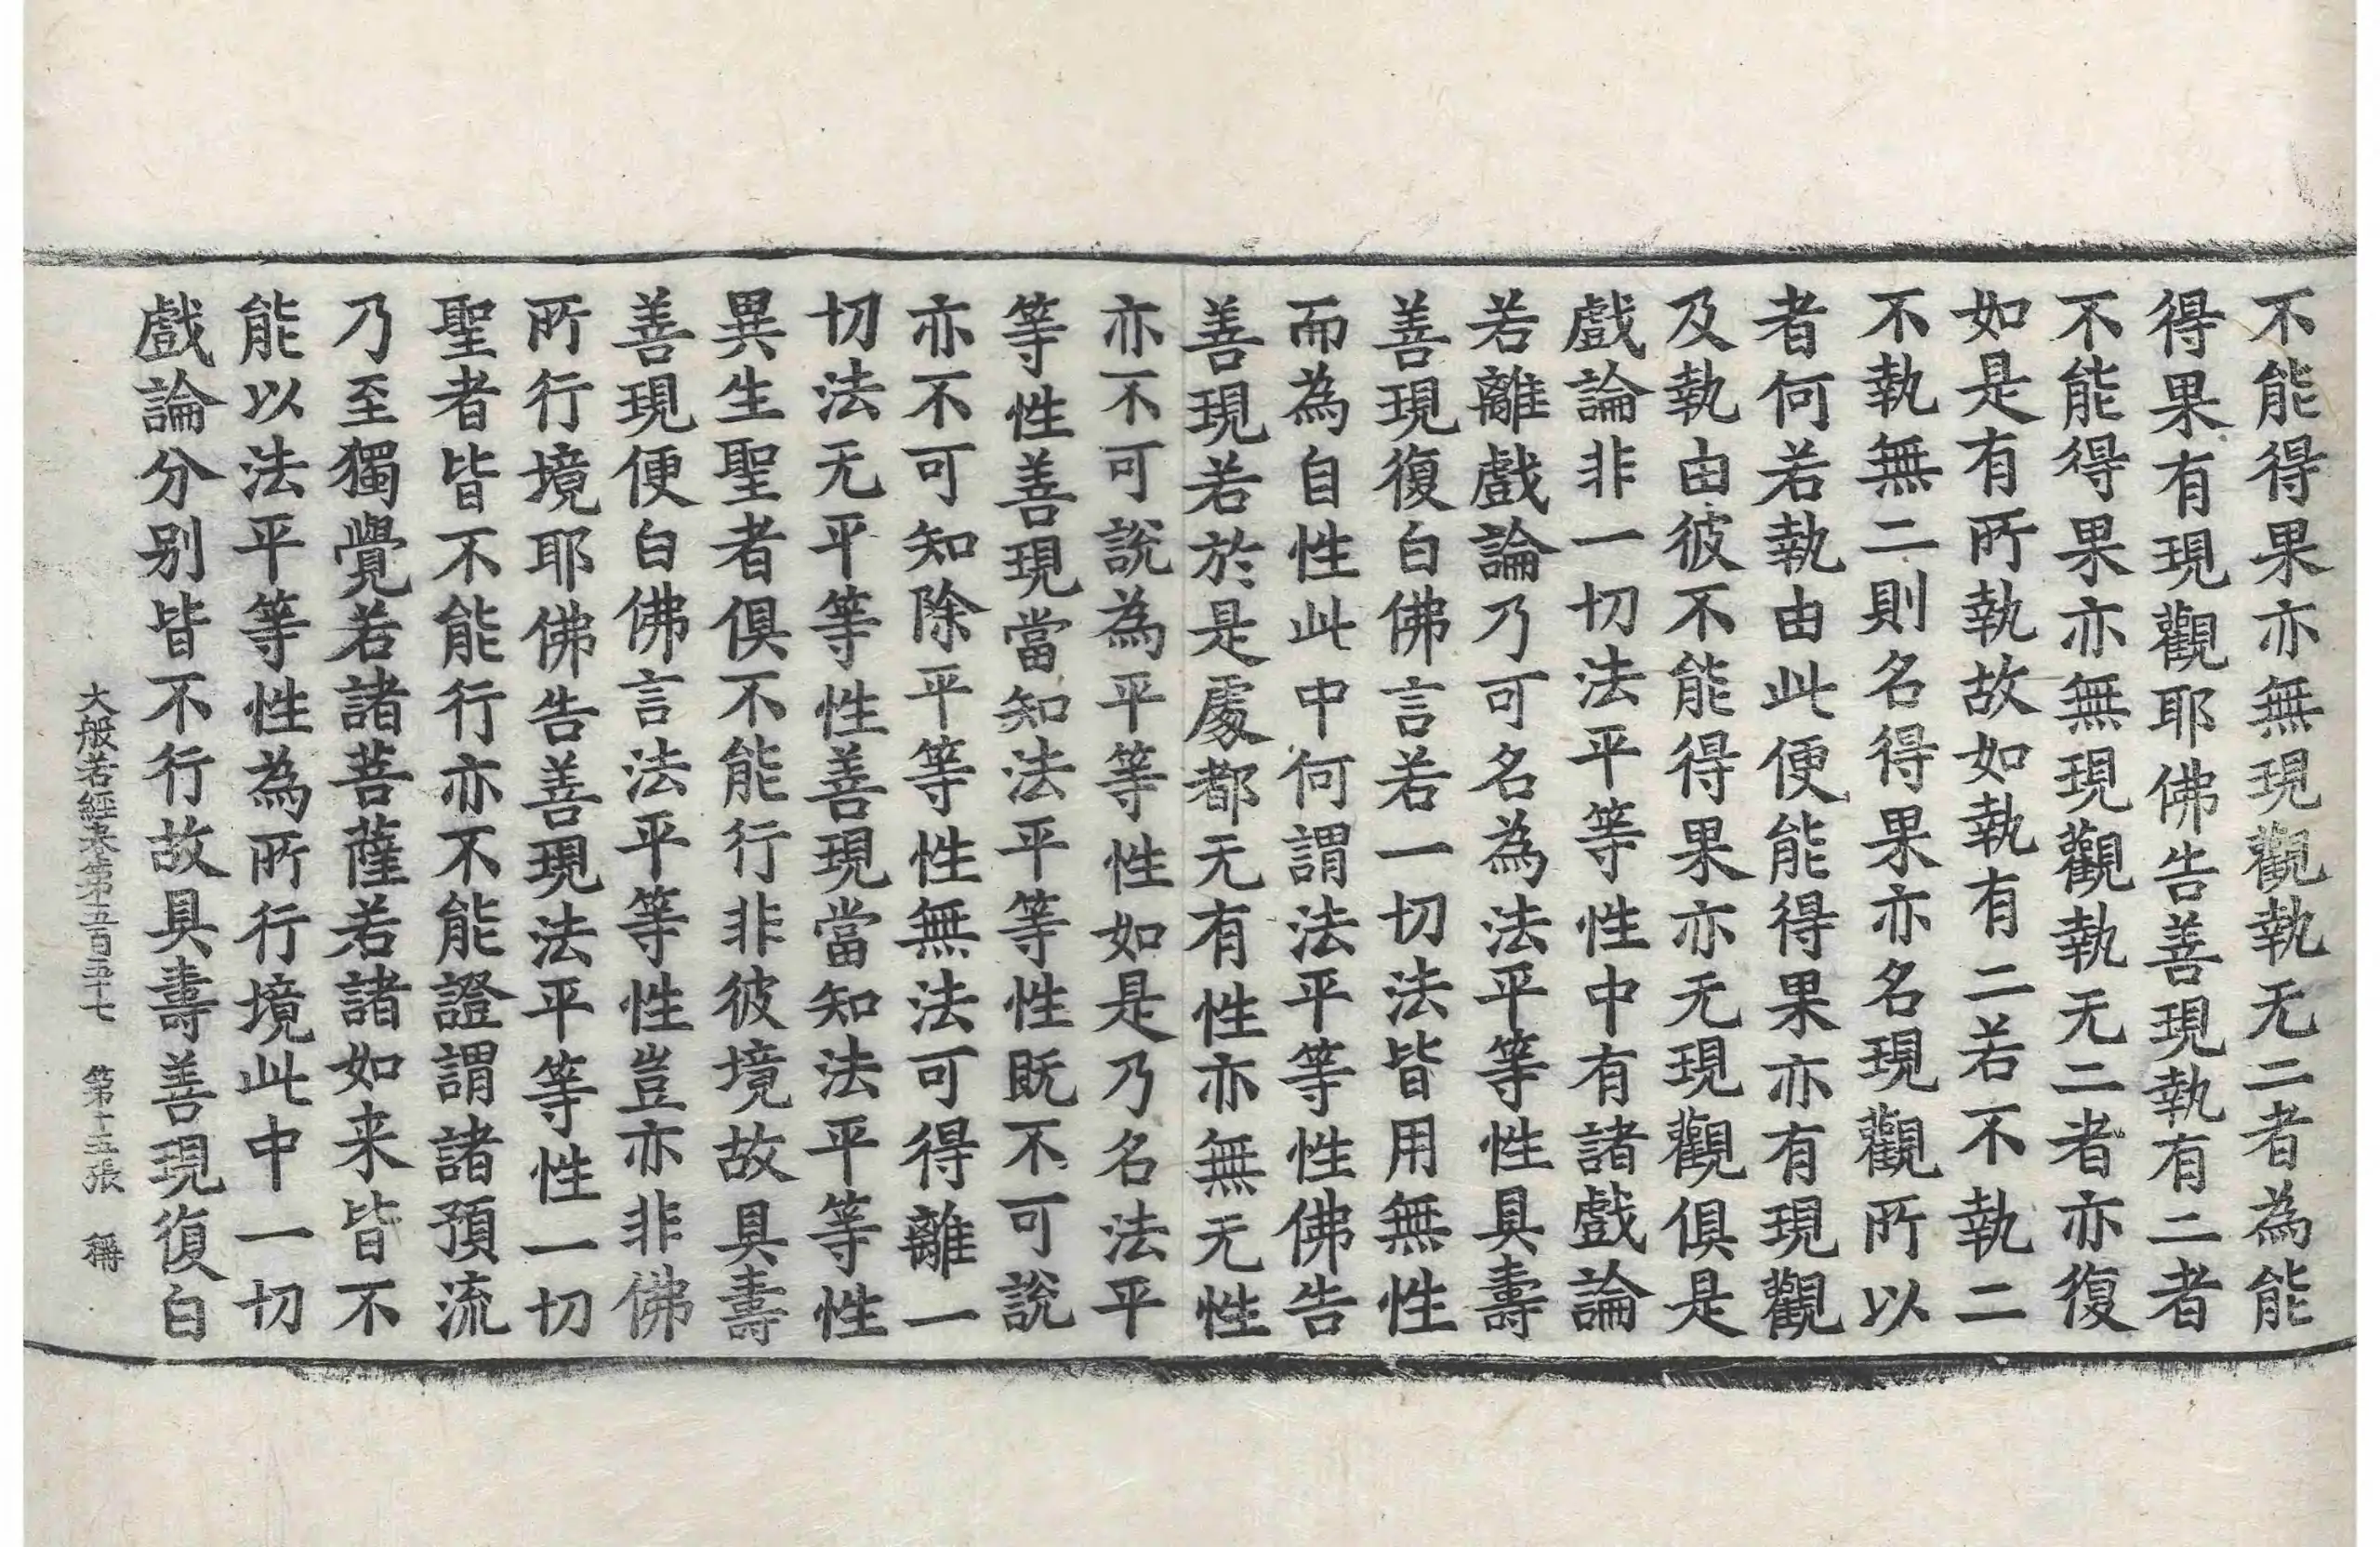 不能得果亦無現觀執无二者為能
得果有現觀耶佛告善現執有二者
不能得果亦無現觀執无二者亦復
如是有所執故如執有二若不執二
不執無二則名得果亦名現觀所以
者何若執由此便能得果亦有現觀
及執由彼不能得果亦无現觀俱是
戲論非一切法平等性中有諸戲論
若離戲論乃可名為法平等性具壽
善現復白佛言若一切法皆用無性
而為自性此中何謂法平等性佛告
善現若於是處都无有性亦無无性
亦不可說為平等性如是乃名法平
等性善現當知法平等性既不可說
亦不可知除平等性無法可得離一
切法无平等性善現當知法平等性
異生聖者俱不能行非彼境故具壽
善現便白佛言法平等性豈亦非佛
所行境耶佛告善現法平等性一切
聖者皆不能行亦不能證謂諸預流
乃至獨覺若諸菩薩若諸如来皆不
能以法平等性為所行境此中一切
戲論分别皆不行故具壽善現復白
大般若經卷第五百三十七 第十五張 稱